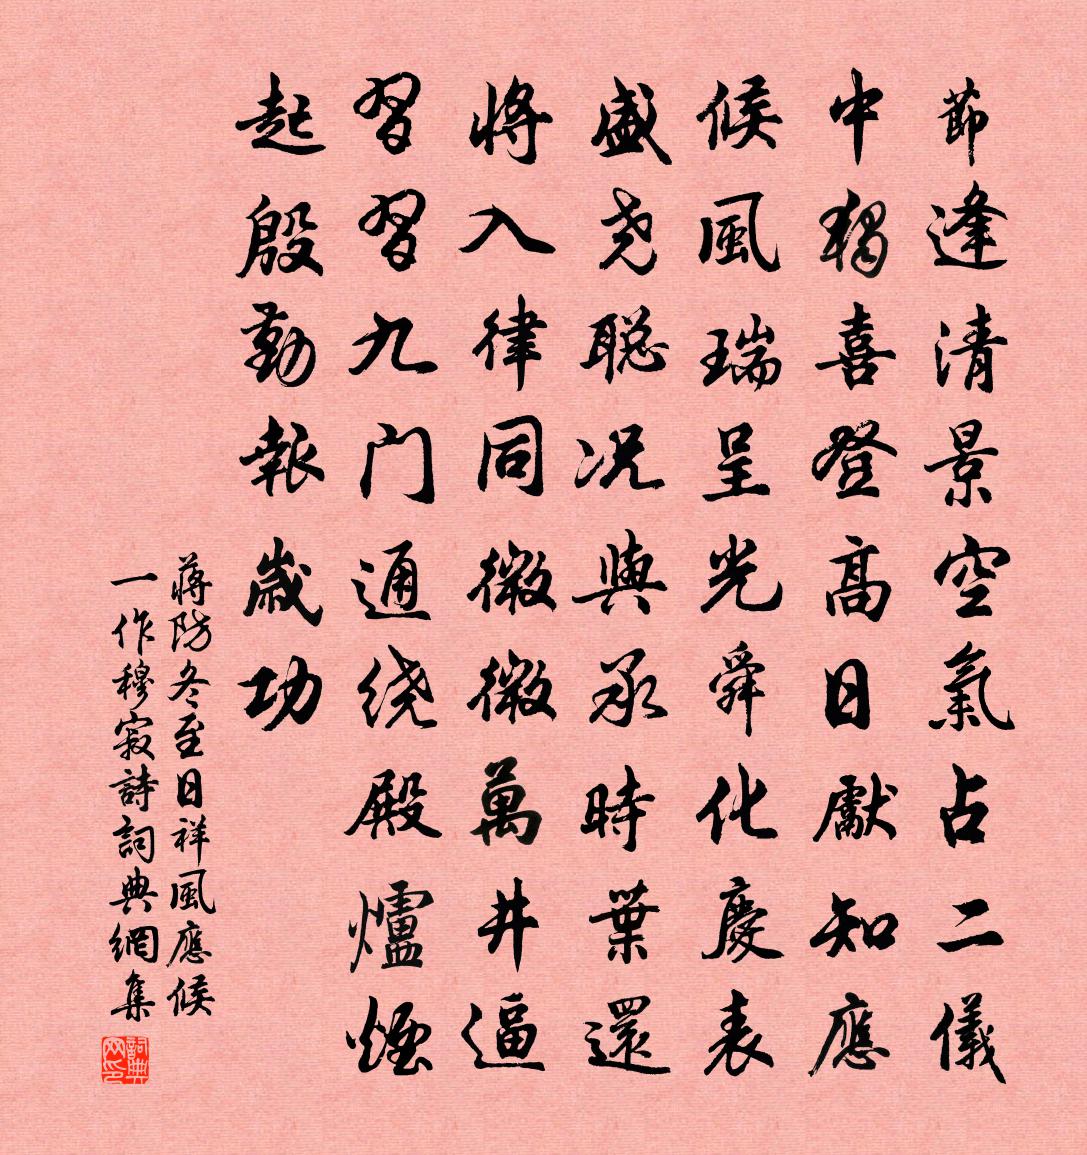 節逢清景空氣占二儀
中獨喜登高日獻知應
候風瑞呈光舜化慶表
盛尧聪况與承時葉還
將入律同微微萬井逼
習習九门通绕殿爐煙
起殷勤報歲功
蔣防冬至日祥風應候
一作穆寂詩詞典網集
詞典网印